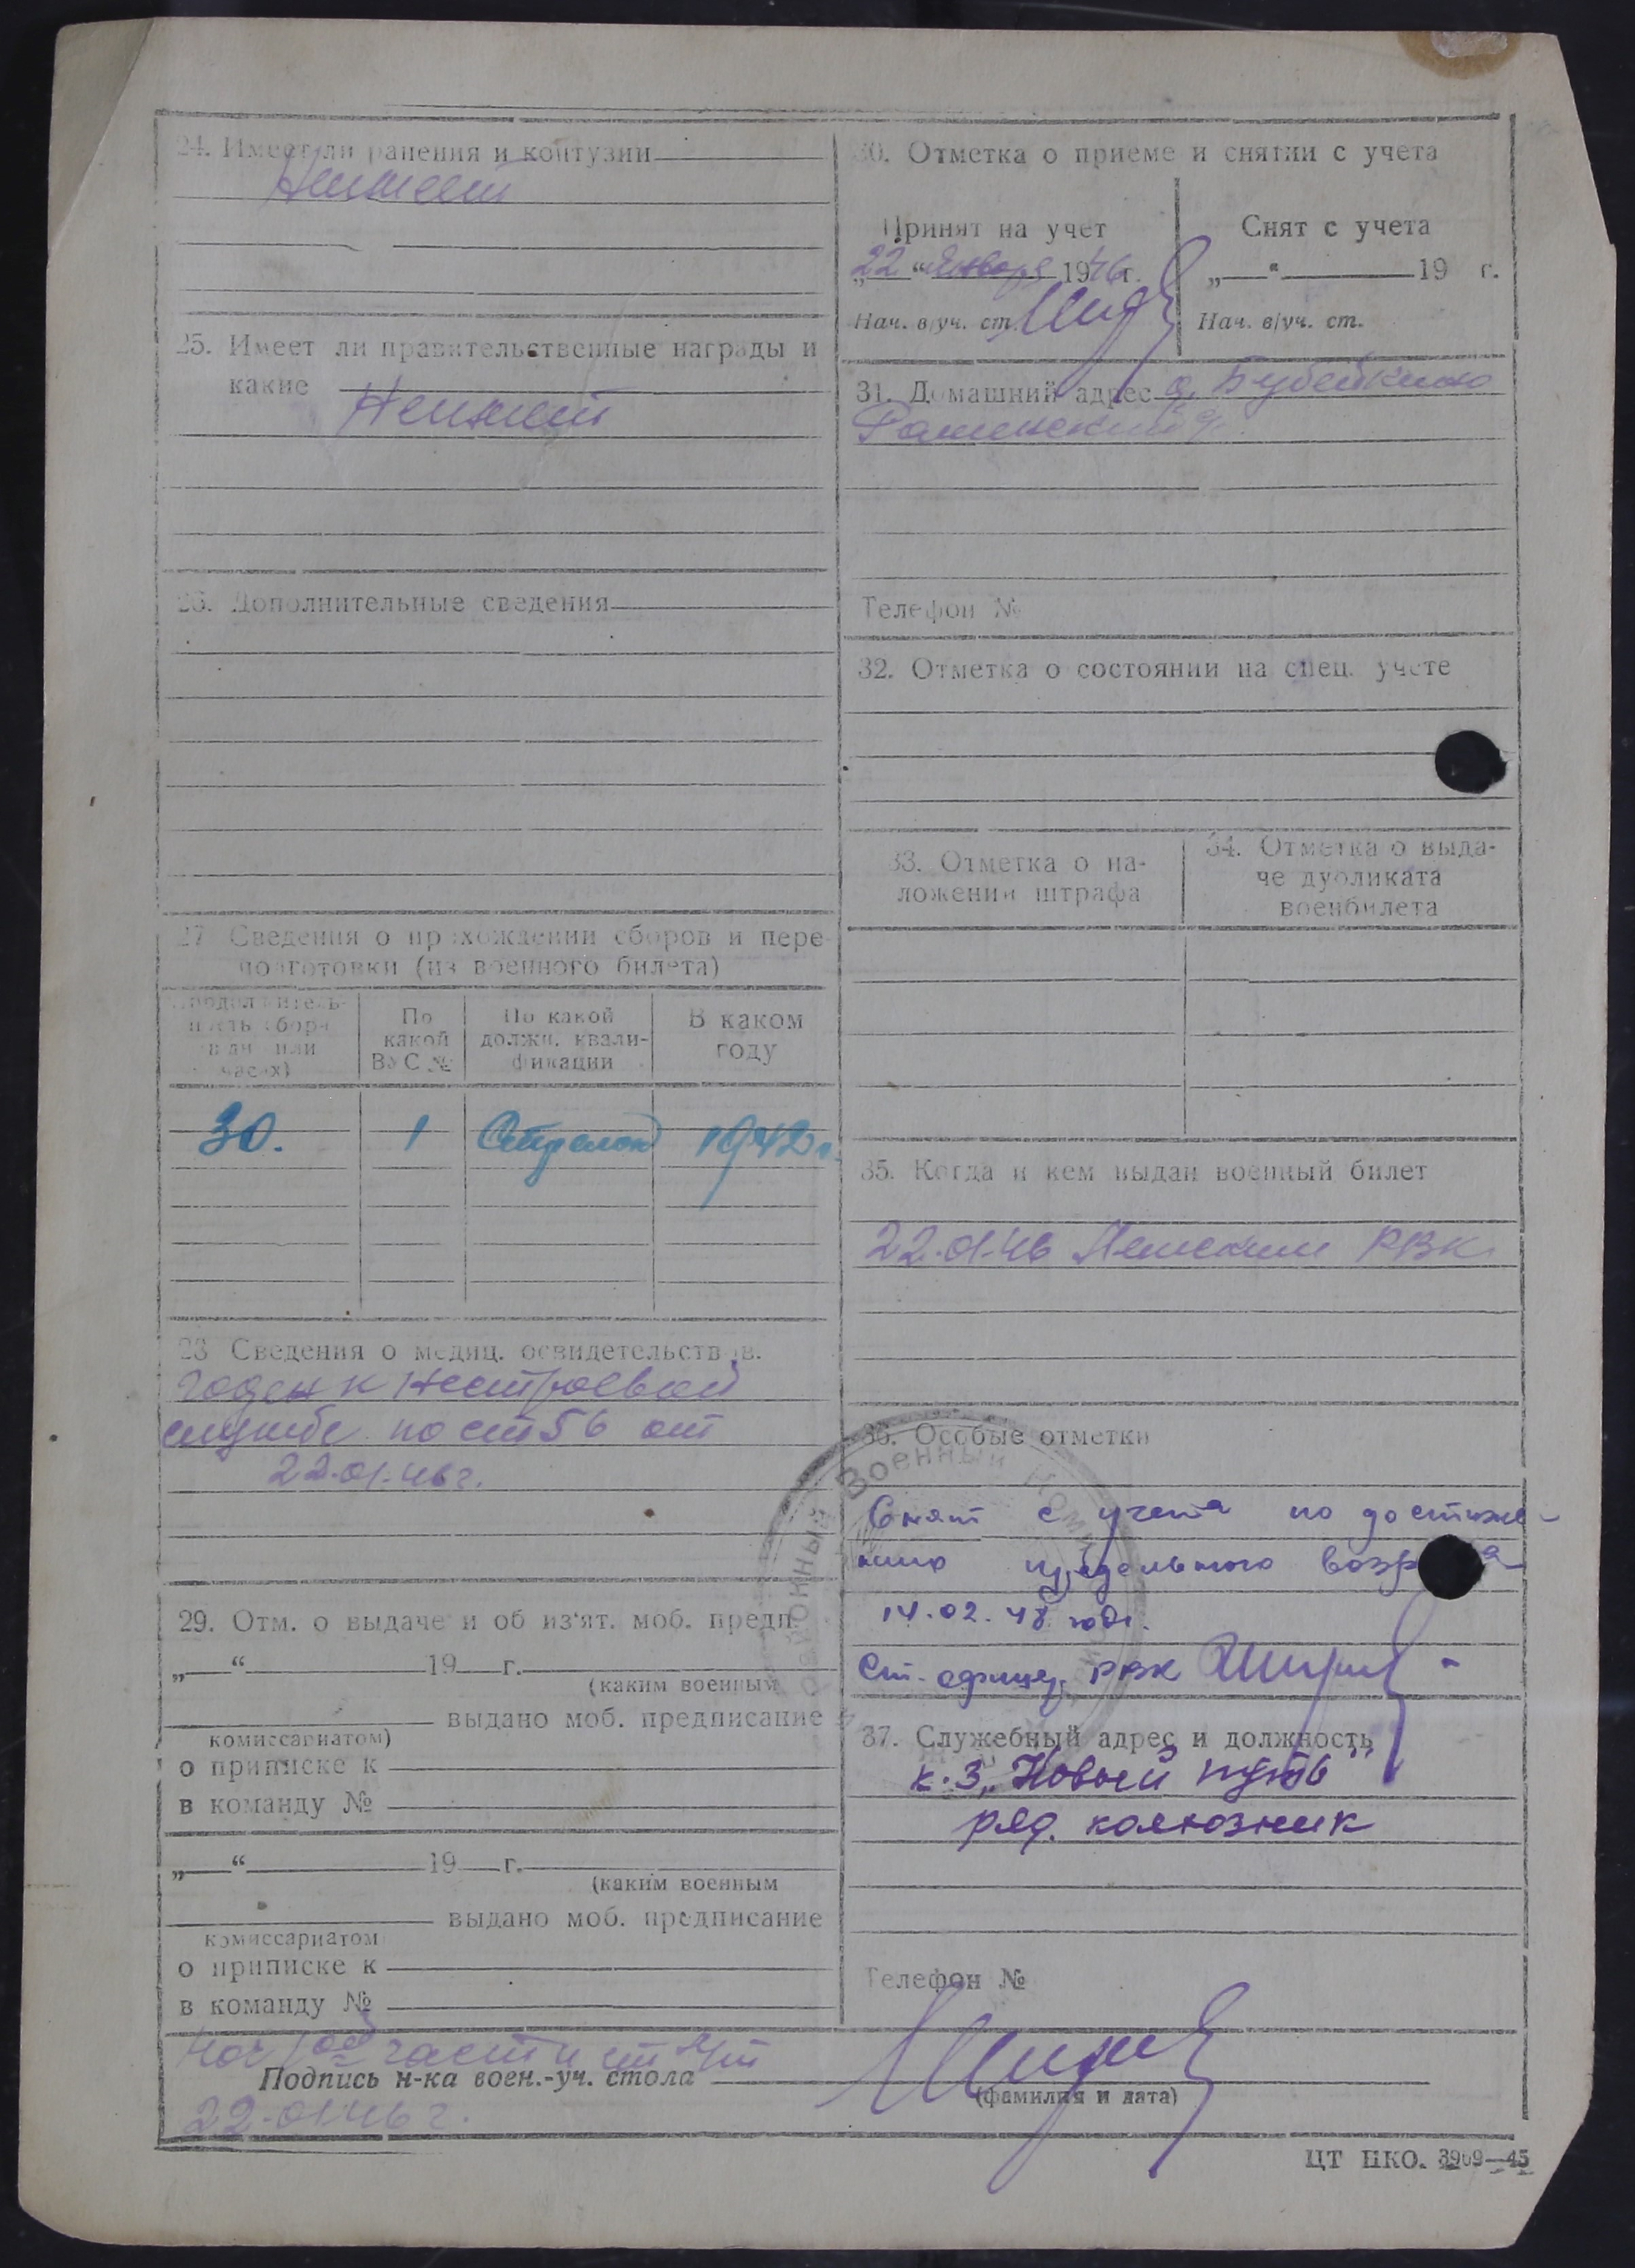 24. Имеет ли ранения и контузии
Неимеет
25. Имеет ли правительственные награды и
какие
Неимеет
26. Дополнительные сведения
27 Сведения о прохождении сборов и пере-
подготовки (из военного билета)
Продолжитель-
ность сбора
в дн. или
часах)
По
какой
ВУС №
По какой
должн. квали-
фикации
В каком
году
30. 1 Стрелок 1942 г.
28 Сведения о медиц. освидетельствов.
Годен к нестроевой
службе по ст 56 от
22.01.46 г.
29. Отм. о выдаче и об из'ят. моб. предп.
„ “ 19 г.
(каким военным
выдано моб. предписание
комиссариатом)
о приписке к
в команду №
„ “ 19 г.
(каким военным
выдано моб. предписание
комиссариатом
о приписке к
в команду №
30. Отметка о приеме и снятии с учета
Принят на учет
„22“ Января 1946 г.
Нач. в/уч. ст.
Снят с учета
„ “ 19 г.
Нач. в/уч. ст.
31. Домашний адрес д. Бубейкино
Телефон №
32. Отметка о состоянии на спец. учете
33. Отметка о на-
ложении штрафа
34. Отметка о выда-
че дубликата
военбилета
35. Когда и кем выдан военный билет
22.01.46 РВК
36. Особые отметки
Районный Военный
Снят с учета по достиже-
нию предельного
14.02.48 года.
Ст. офицер РВК
37. Служебный адрес и должность
к-з „Новый путь"
ряд. колхозник
Телефон №
Нач части
Подпись н-ка воен.-уч. стола
(фамилия и дата)
22.01.46 г.
ЦТ НКО. 3969—45